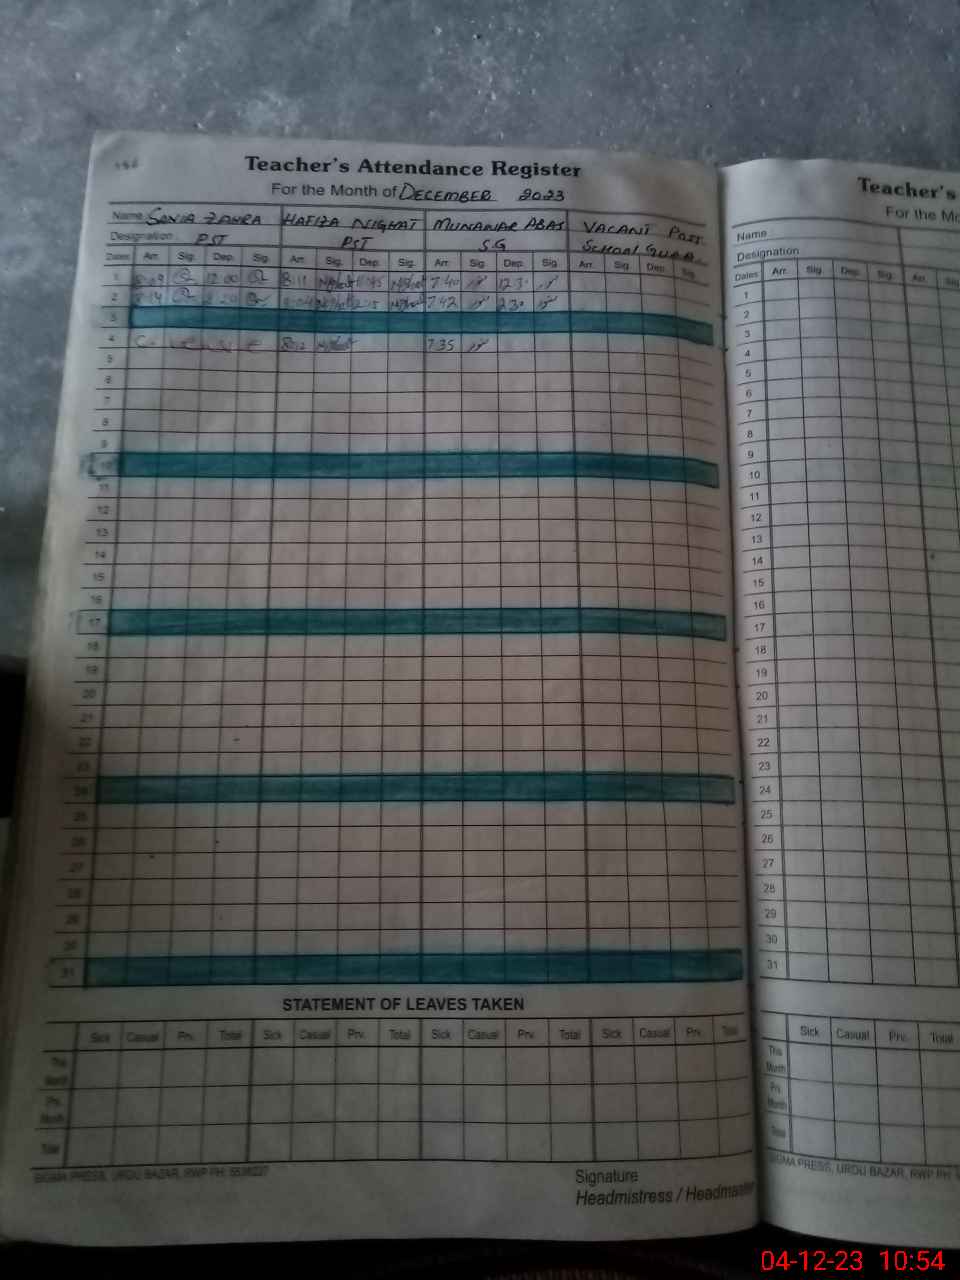 Teacher's Attendance Register
For the Month of DECEMBER 2023
Name SONIA ZAHRA HAFIZA NIGHAT MUNAWAR ABAS VACANT POST
Designation PST PST S.G SCHOOL GUARD
Dates Arr. Sig. Dep. Sig. Arr. Sig. Dep. Sig. Arr. Sig. Dep. Sig. Arr. Sig. Dep. Sig.
1 8:09 12:00 8:11 7.40
2 8:14 7.42 2.30
3
4 8:12 7.35
5
6
7
8
9
10
11
12
13
14
15
16
17
18
19
20
21
22
23
24
25
26
27
28
29
30
31
STATEMENT OF LEAVES TAKEN
Sick Casual Prv. Total Sick Casual Prv. Total Sick Casual Prv. Total Sick Casual Prv. Total
This Month
Prv. Month
Total
SIGMA PRESS, URDU BAZAR, RWP PH:
Signature
Headmistress / Headmaster
Teacher's
For the Mo
Name :
Designation
Dates Arr. Sig. Dep. Sig. Arr. Sig.
1
2
3
4
5
6
7
8
9
10
11
12
13
14
15
16
17
18
19
20
21
22
23
24
25
26
27
28
29
30
31
Sick Casual Prv. Total
This Month
Prv. Month
Total
SIGMA PRESS, URDU BAZAR, RWP PH:
04-12-23 10:54